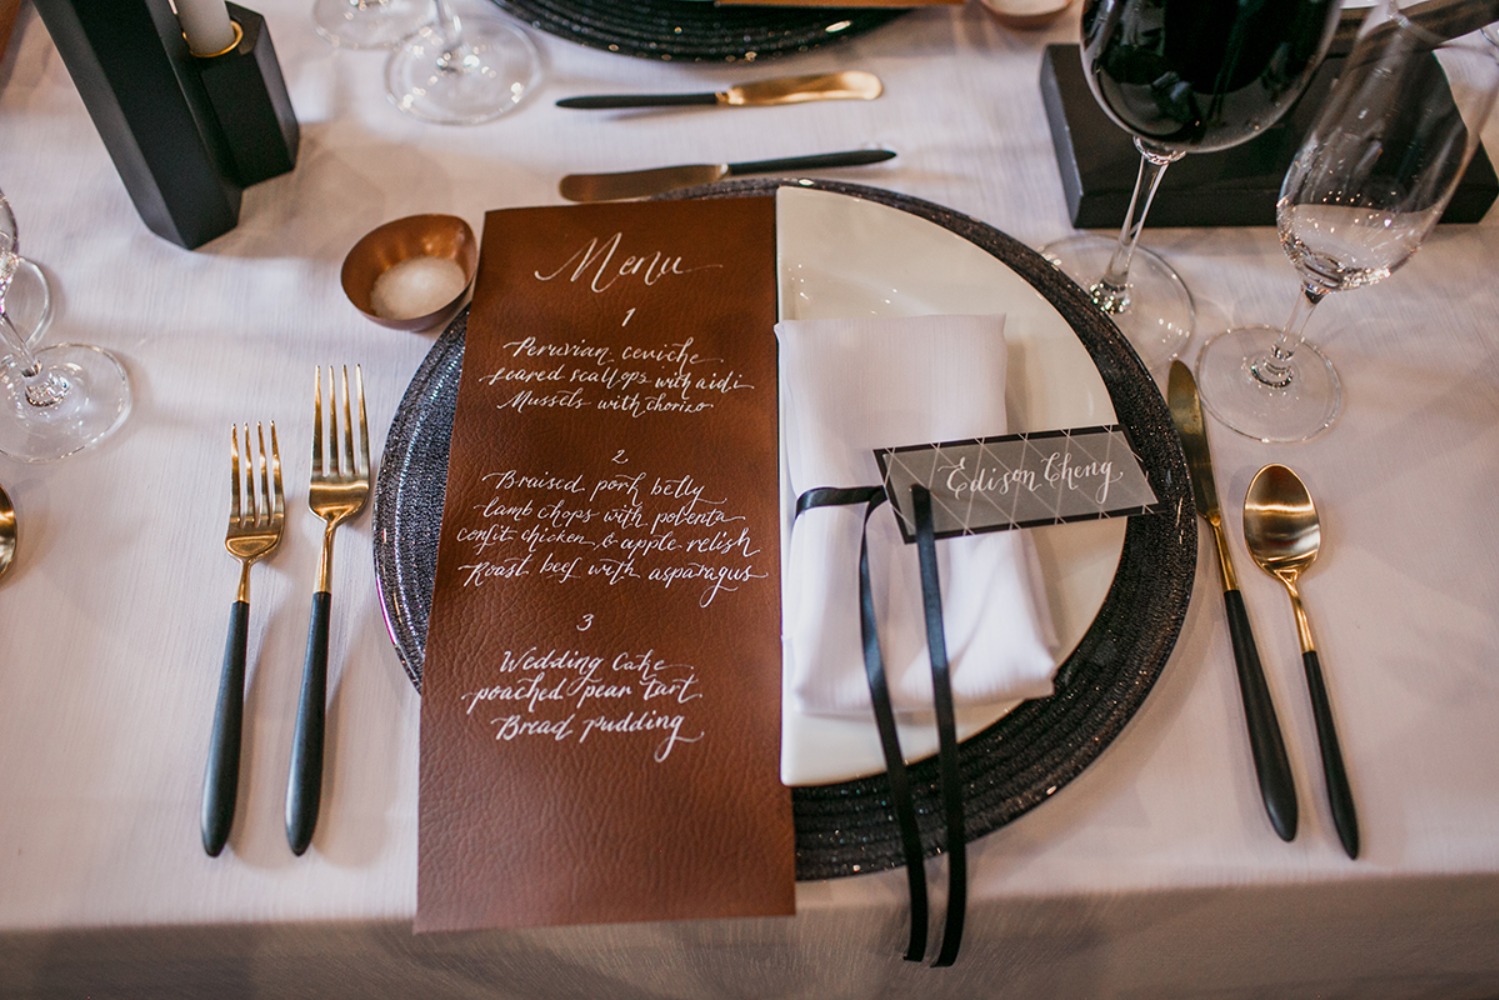 Menu
1
Peruvian ceviche
seared scallops with aioli
Mussels with chorizo
2
Braised pork belly
lamb chops with polenta
confit chicken & apple relish
Roast beef with asparagus
3
Wedding Cake
poached pear tart
Bread pudding
Edison Cheng